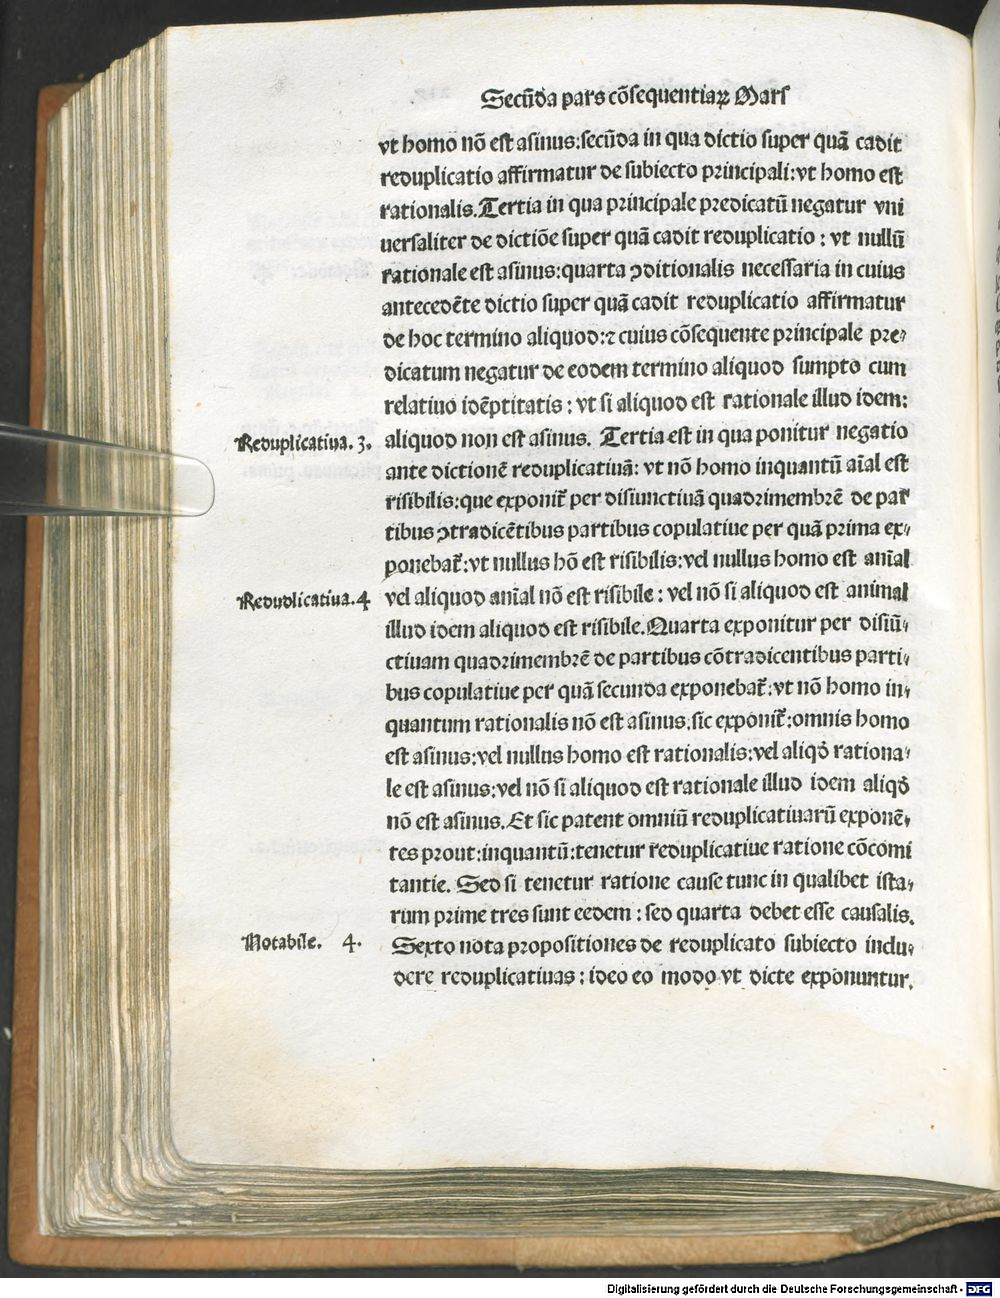 Secūda pars cōsequentiaꝝ Mars
vt homo nō est asinus:secūda in qua dictio super quā cadit
reduplicatio affirmatur de subiecto principali:vt homo est
rationalis.Tertia in qua principale predicatū negatur vni
uersaliter de dictiōe super quā cadit reduplicatio : vt nullū
rationale est asinus:quarta ꝯditionalis necessaria in cuius
antecedēte dictio super quā cadit reduplicatio affirmatur
de hoc termino aliquod:⁊ cuius cōsequente principale pre-
dicatum negatur de eodem termino aliquod sumpto cum
relatiuo idēptitatis : vt si aliquod est rationale illud idem:
Reduplicatiua. 3.
aliquod non est asinus. Tertia est in qua ponitur negatio
ante dictionē reduplicatiuā: vt nō homo inquantū aīal est
risibilis:que exponit᷑ per disiunctiuā quadrimembrē de par
tibus ꝯtradicētibus partibus copulatiue per quā prima ex-
ponebat᷑:vt nullus hō est risibilis:vel nullus homo est anīal
Reduplicatiua.4
vel aliquod anīal nō est risibile : vel nō si aliquod est animal
illud idem aliquod est risibile.Quarta exponitur per disiū-
ctiuam quadrimembrē de partibus cōtradicentibus parti-
bus copulatiue per quā secunda exponebat᷑:vt nō homo in-
quantum rationalis nō est asinus.sic exponit᷑:omnis homo
est asinus:vel nullus homo est rationalis:vel aliqđ rationa-
le est asinus:vel nō si aliquod est rationale illud idem aliqđ
nō est asinus.Et sic patent omniū reduplicatiuarū exponē-
tes prout:inquantū:tenetur reduplicatiue ratione cōcomi
tantie. Sed si tenetur ratione cause tunc in qualibet ista-
rum prime tres sunt eedem : sed quarta debet esse causalis.
Notabile. 4.
Sexto nota propositiones de reduplicato subiecto inclu-
dere reduplicatiuas : ideo eo modo vt dicte exponuntur.
Digitalisierung gefördert durch die Deutsche Forschungsgemeinschaft - DFG